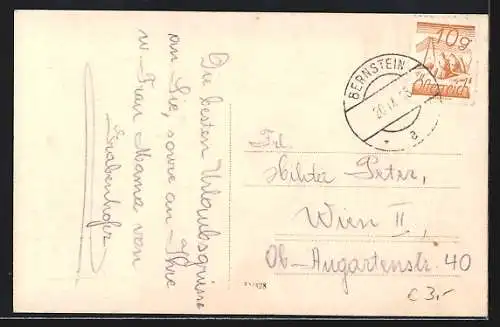 Die besten Urlaubsgrüsse
an Sie, sowie an Ihre
w. Frau Mama von
Grabenhofer
10g
Österreich
BERNSTEIN
20.IX.
a
Frl.
Hilda Peter,
Wien II,
Ob-Augartenstr. 40
€ 3,-